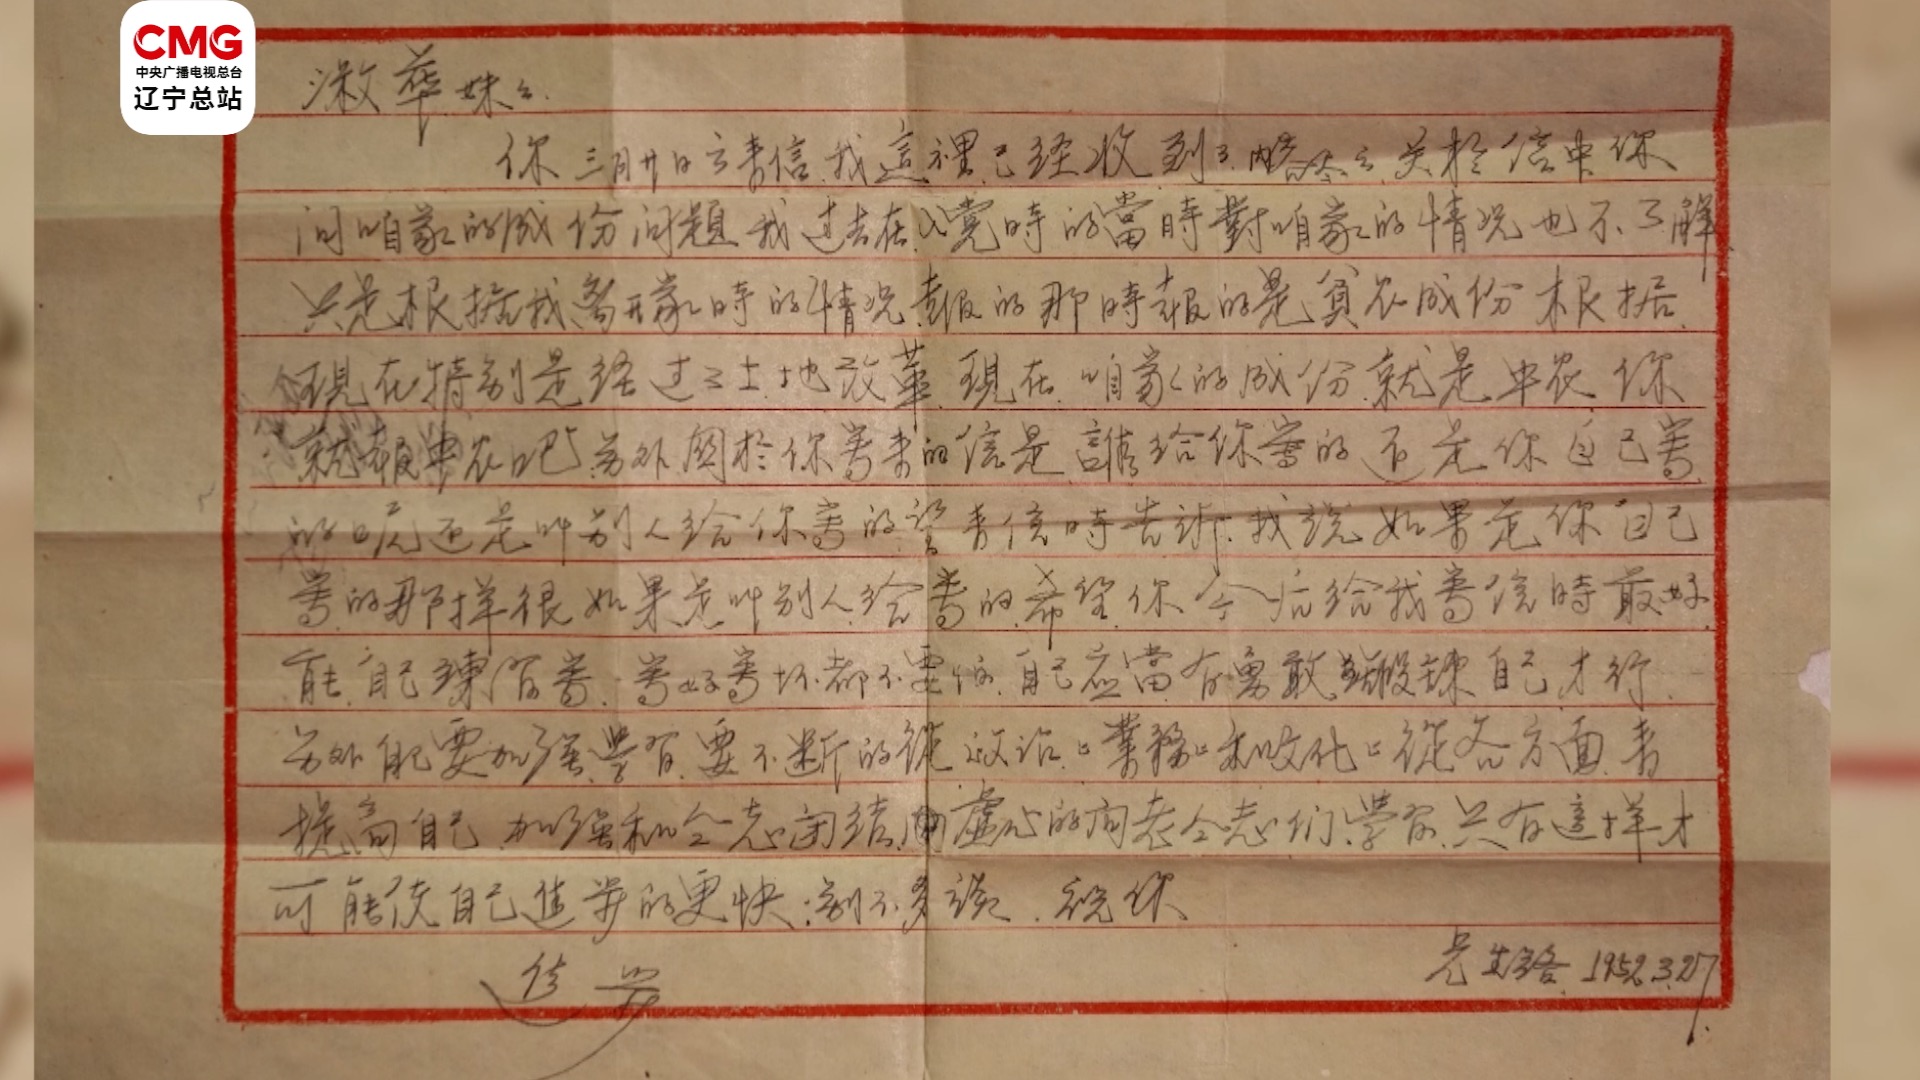 CMG
中央广播电视总台
辽宁总站
淑華妹:
你三月廿日云来信我這裡已经收到了,内容一切尽知,关於信中你
问咱家的成份问題我过去在入党時的當時對咱家的情况也不了解
只是根据我离开家時的情况报的那時报的是貧农成份根据
现在特别是经过了土地改革现在咱家的成份就是中农你
就报中农吧另外関於你写来的信是誰给你写的还是你自己写
的呢还是叫别人给你写的望来信時告訴我说如果是你自己
写的那样很如果是叫别人给写的希望你今后给我写信時最好
能自己练习写.写好写坏都不要怕自己应當有勇敢锻鍊自己才行.
另外自己要加强學习要不断的從政治、業务、和文化、從各方面来
提高自己加强和仝志团结虚心的向老仝志们學习只有這样才
可能使自己進步的更快.别不多談.祝你
進步
兄 生路 1952.3.27